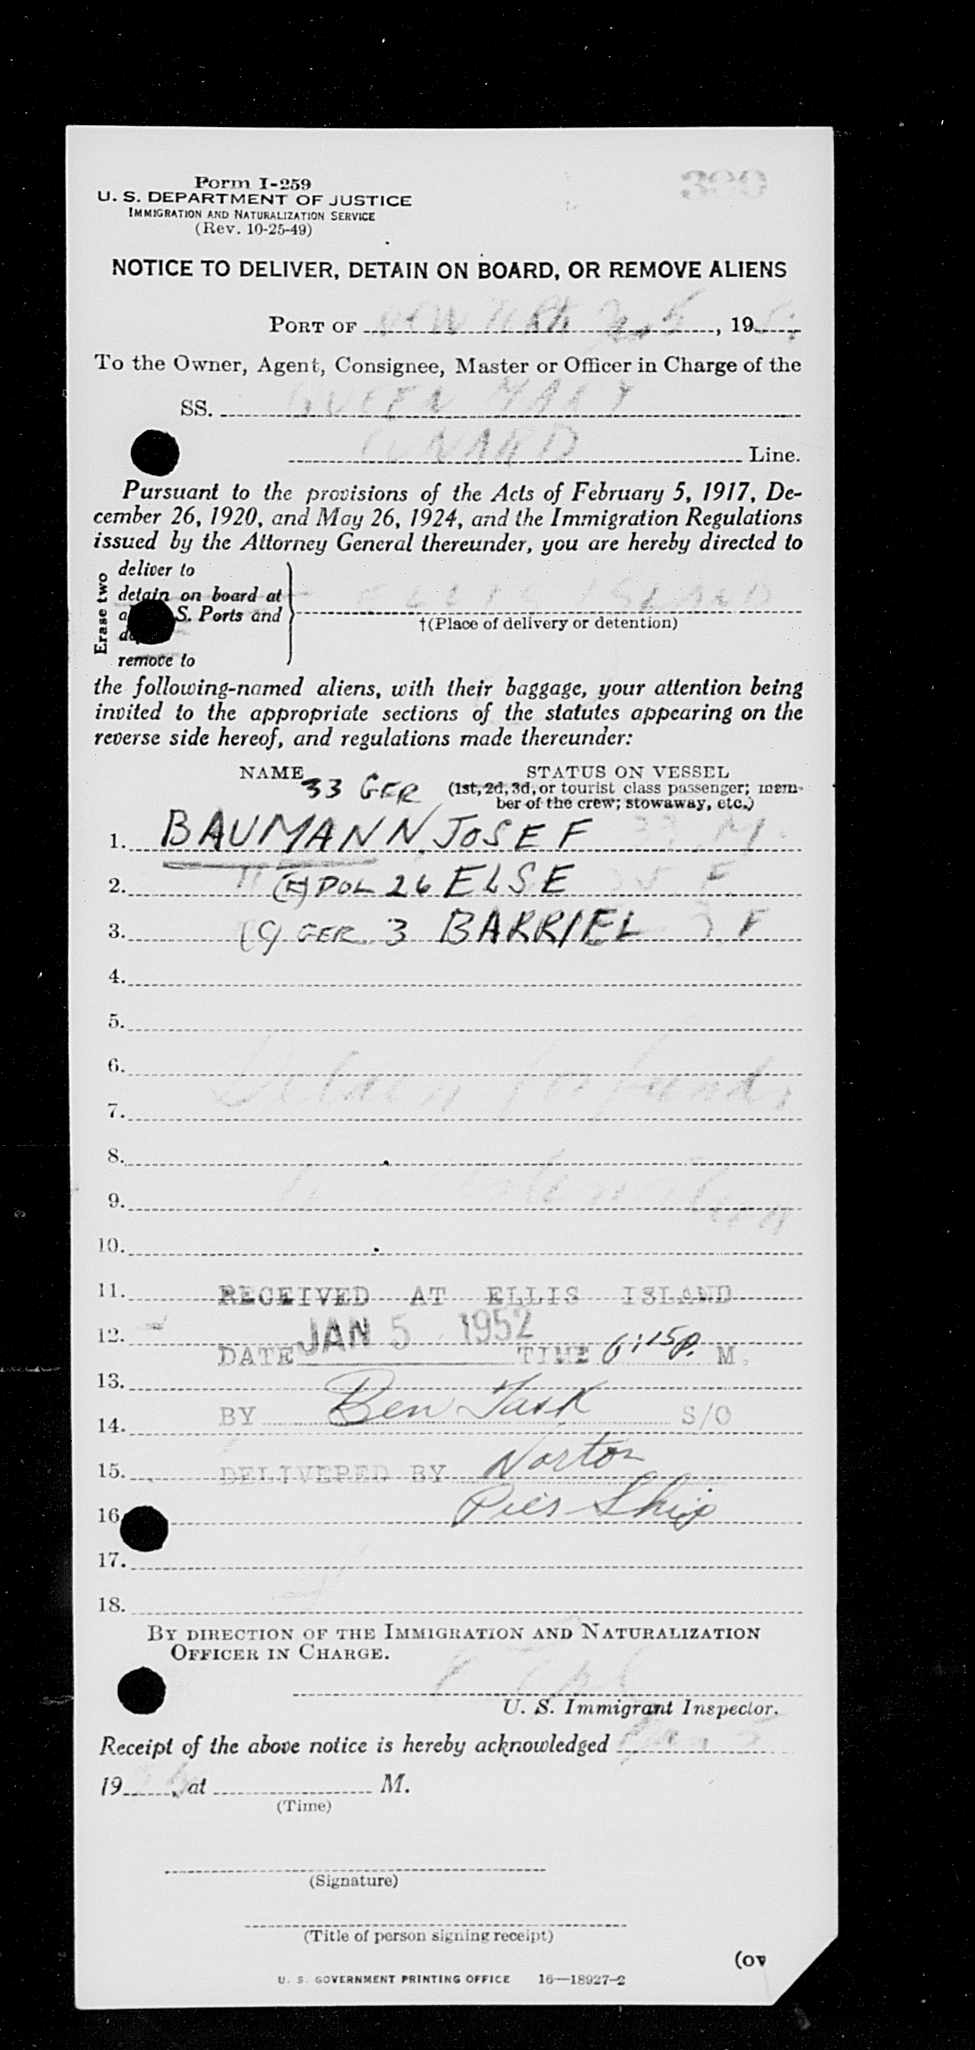 Form I-259
U. S. DEPARTMENT OF JUSTICE
IMMIGRATION AND NATURALIZATION SERVICE
(Rev. 10-25-49)
390
NOTICE TO DELIVER, DETAIN ON BOARD, OR REMOVE ALIENS
PORT OF NEW YORK, 19
To the Owner, Agent, Consignee, Master or Officer in Charge of the
SS. QUEEN MARY
CUNARD Line.
Pursuant to the provisions of the Acts of February 5, 1917, De-
cember 26, 1920, and May 26, 1924, and the Immigration Regulations
issued by the Attorney General thereunder, you are hereby directed to
Erase two
deliver to
detain on board at
S. Ports and
remove to
ELLIS ISLAND
†(Place of delivery or detention)
the following-named aliens, with their baggage, your attention being
invited to the appropriate sections of the statutes appearing on the
reverse side hereof, and regulations made thereunder:
NAME STATUS ON VESSEL
33 GER (1st, 2d, 3d, or tourist class passenger; mem-
ber of the crew; stowaway, etc.)
1. BAUMANN, JOSEF 33 M
2. " POL 26 ELSE F
3. (C) GER 3 BARRIEL 3 F
4.
5.
6.
Detain for funds
7.
8.
9.
10.
11. RECEIVED AT ELLIS ISLAND
12. JAN 5 1952
DATE TIME 6:15 P. M.
13.
BY Ben Task S/O
14.
15. DELIVERED BY Norton
Pier Ship
16.
17.
18.
BY DIRECTION OF THE IMMIGRATION AND NATURALIZATION
OFFICER IN CHARGE.
U. S. Immigrant Inspector.
Receipt of the above notice is hereby acknowledged Jan 5
19, at M.
(Time)
(Signature)
(Title of person signing receipt)
(ov
U. S. GOVERNMENT PRINTING OFFICE 16—18927-2